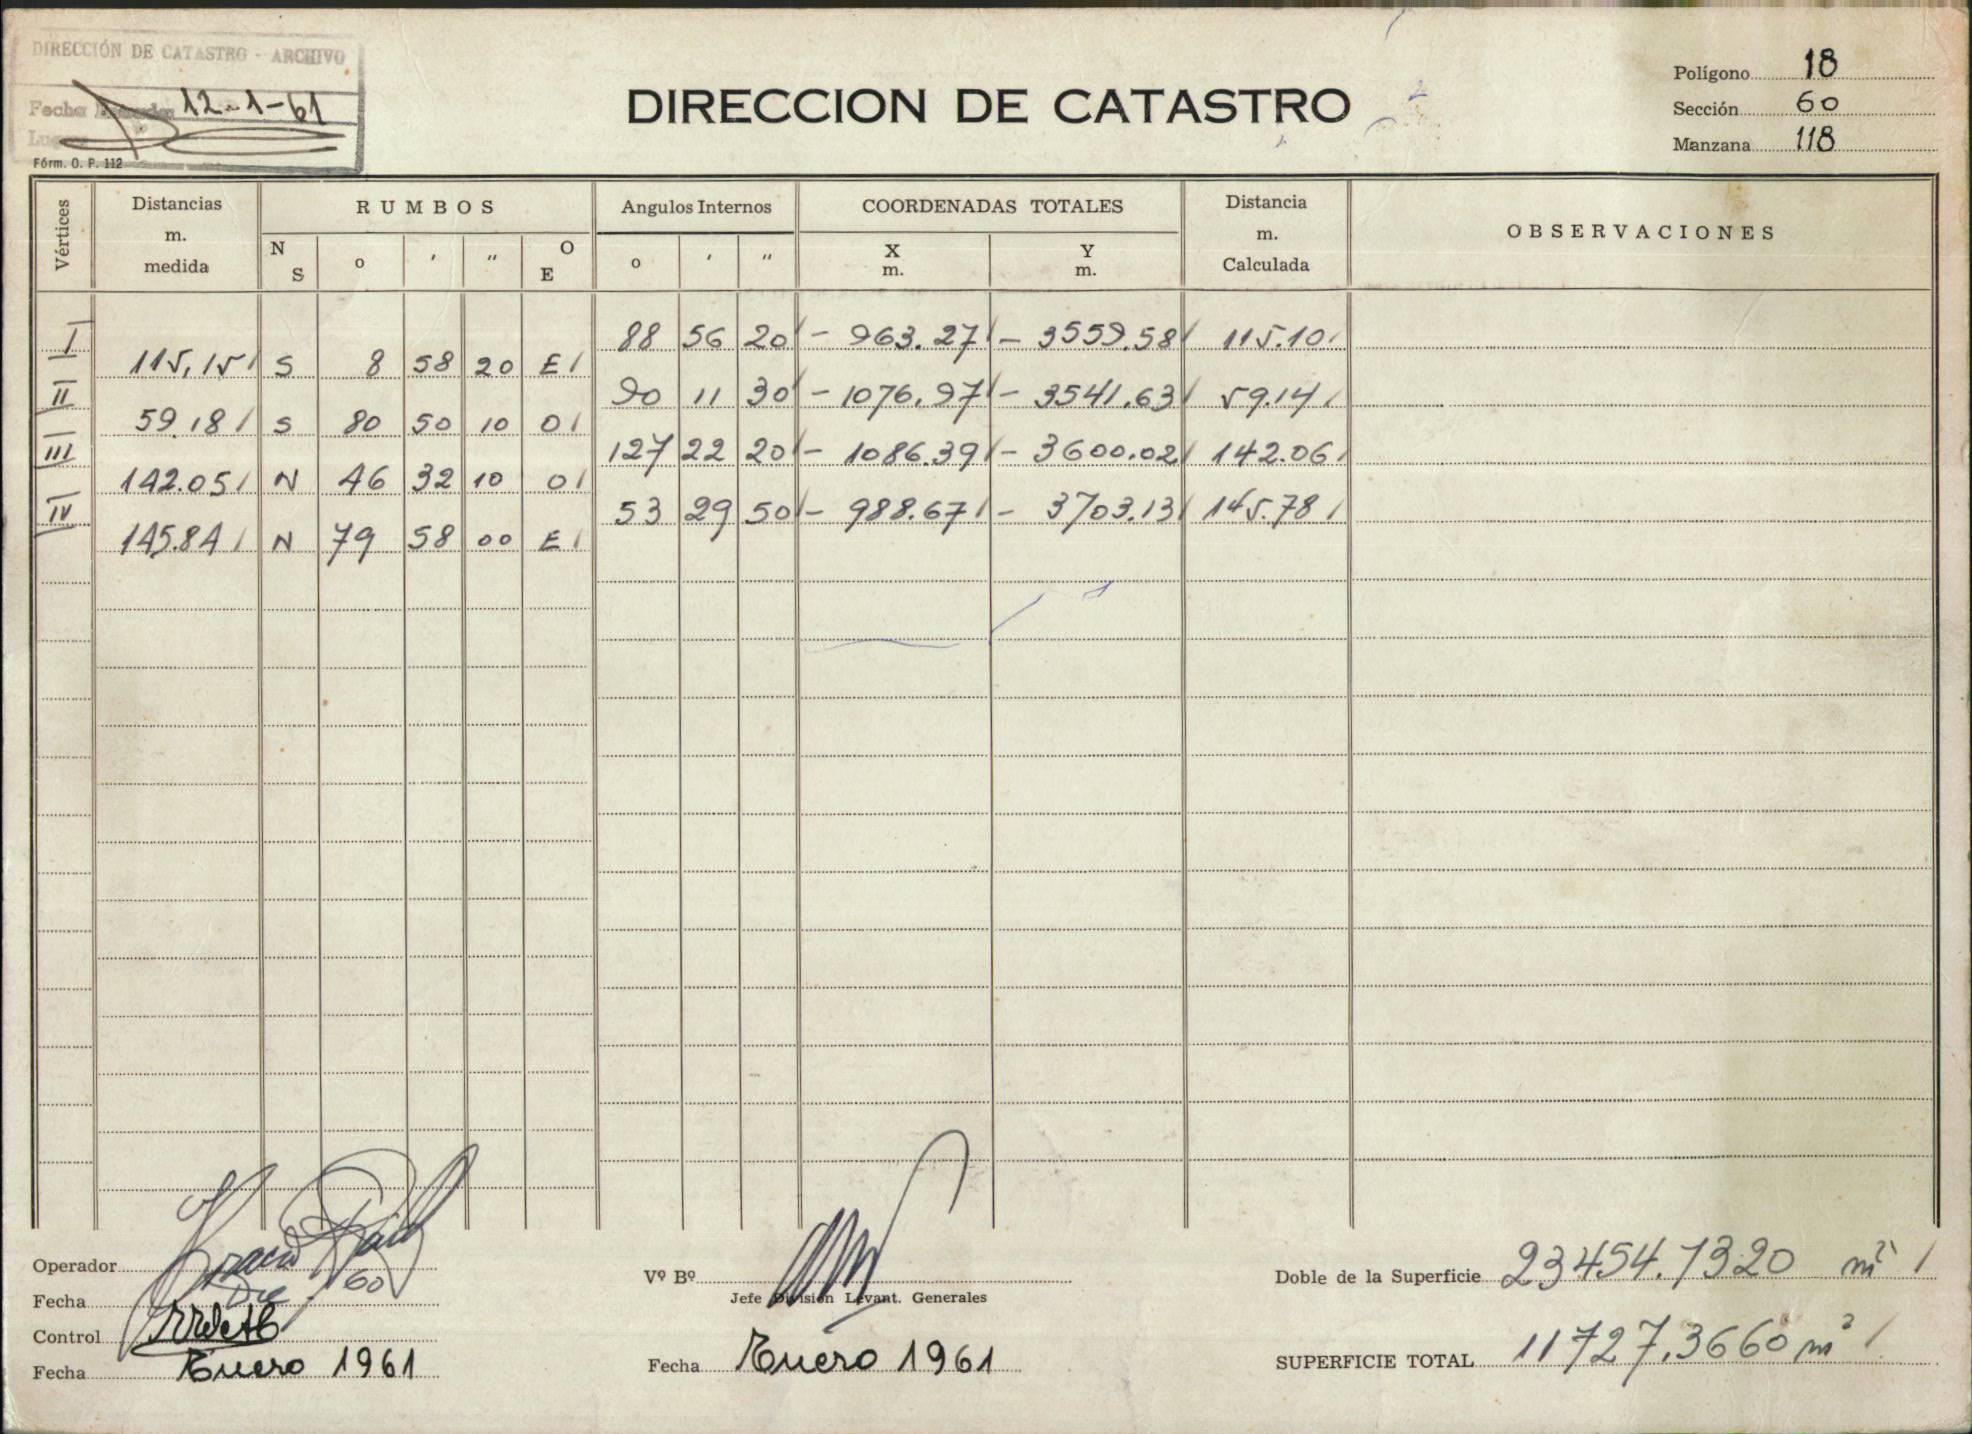 DIRECCIÓN DE CATASTRO - ARCHIVO
Fecha 12-1-61
Fórm. O. P. 112
DIRECCION DE CATASTRO
Polígono 18
Sección 60
Manzana 118
Vértices Distancias m. medida RUMBOS Angulos Internos COORDENADAS TOTALES Distancia m. Calculada OBSERVACIONES
N S o ' " O E o ' " X m. Y m.
I 88 56 20 - 963.27 - 3559.58 115.10
115,15 S 8 58 20 E
II 90 11 30 - 1076.97 - 3541.63 59.14
59.18 S 80 50 10 O
III 127 22 20 - 1086.39 - 3600.02 142.06
142.05 N 46 32 10 O
IV 53 29 50 - 988.67 - 3703.13 145.78
145.84 N 79 58 00 E
Operador
Fecha Dic 60
Control
Fecha Enero 1961
Vº Bº
Jefe División Levant. Generales
Fecha Enero 1961
Doble de la Superficie 23454.7320 m²
SUPERFICIE TOTAL 11727.3660 m²